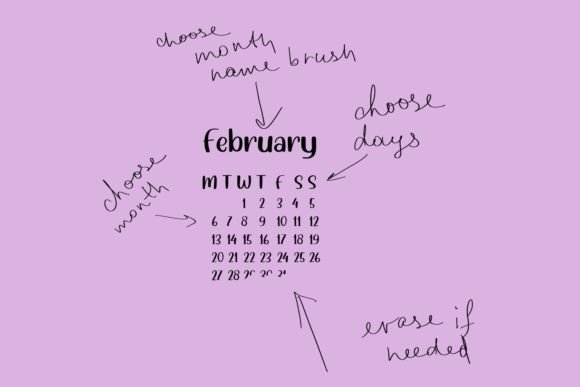 choose
month
name brush
choose
days
february
M T W T F S S
1 2 3 4 5
choose
month
6 7 8 9 10 11 12
13 14 15 16 17 18 19
20 21 22 23 24 25 26
27 28
erase if
needed